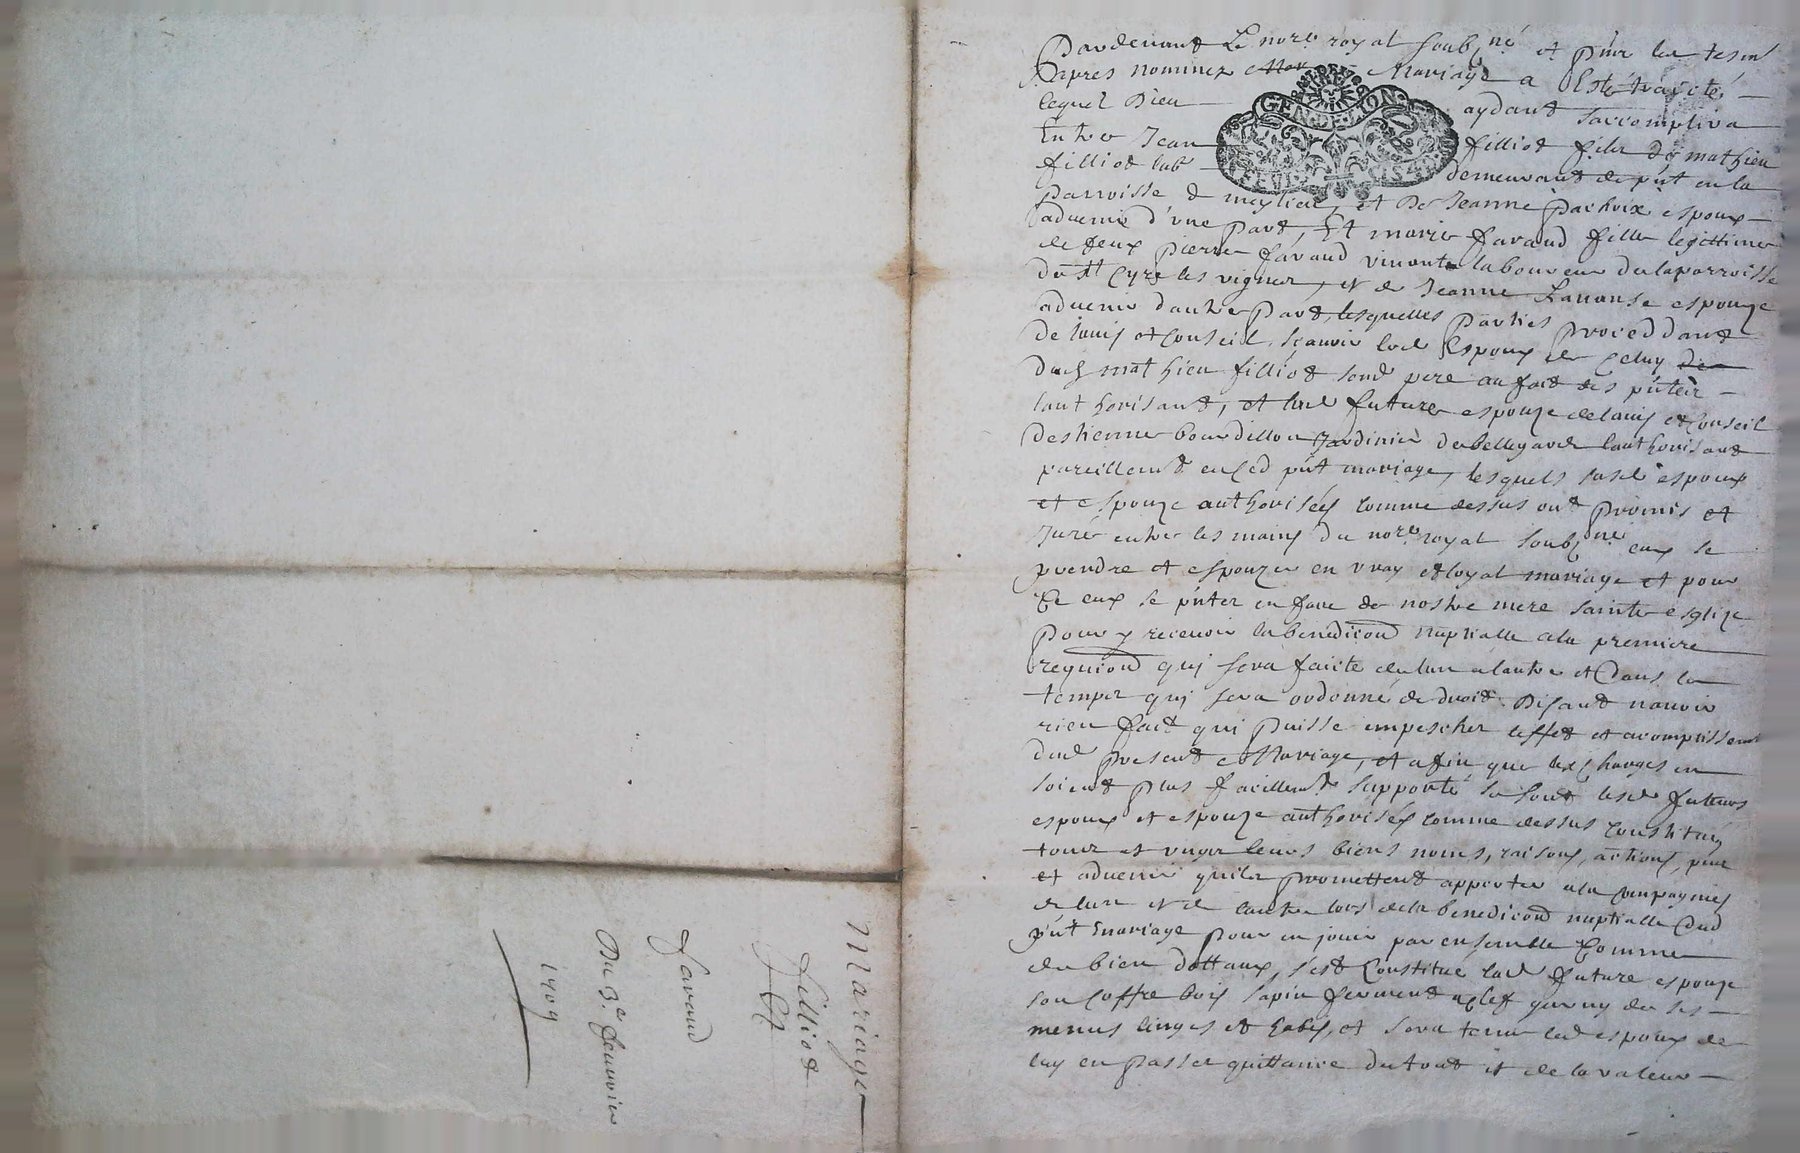 Pardevant Le nore royal soubzné et pñs les tesm
apres nommez Mariage a Esté traicté
lequel Dieu aydant saccomplira
GEN·DE·LION
Entre Jean filliot fils de mathieu
filliot lab demeurant de pñt en la
parroisse de meylieu, et de Jeanne espoux
advenir d'une Part, Et marie favaud fille legittime
de feux Pierre favaud vivant laboureur de la parroisse
de St Cyre les vignes, et de Jeanne espouze
advenir dautre Part, lesquelles Parties Proceddant
de lavis et Conseil, sçavoir led Espoux de Celuy de
dud mathieu filliot sond pere au fait des pñtes
lauthorisant, et lad future espouze de lavis et Conseil
destienne bourdillon Jardinier de bellegarde lauthorisant
pareillemt en Ced pñt mariage, lesquels susd espoux
et espouze authorisés comme dessus ont Promis et
Juré entre les mains du nore royal soubzné eux se
prendre et espouzer en vray et loyal mariage et pour
Ce eux se pñter en face de nostre mere sainte esglize
Pour y recevoir la benediction nuptialle a la premiere
requiond qui sera faicte de lun a lautre et Dans le
temps qui sera ordonné de droit. Disant navoir
rien fait qui Puisse empescher leffet et acomplissemt
dud present Mariage, et afin que les Charges en
soient Plus facillemt supporté se sont lesd futeurs
espoux et espouze authorisés comme dessus constitué
tous et unger leurs biens noms, raisons, actions, pñs
et advenir quils promettent apporter a la Compagnies
de lun et de lautre lors de la benediction nuptialle Dud
pñt mariage Pour en jouir par ensemble Comme
de bien dottaux, s'est Constitué lad future espouze
son Coffre bois sapin fermant a Clef garny de ses
menus linges et habis, et sera tenu led espoux de
luy en Passer quittance du tout et de la valeur
Mariage
filliot
Et
favaud
Du 3e feuvrier
1709